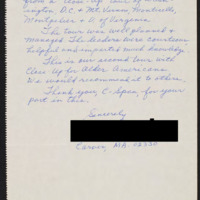 from a Close-Up tour of Wash-
ington, D.C. & Mt. Vernon, Monticello,
Montpelier & U. of Virginia.
The tour was well planned &
managed. The leaders were courteous
helpful and imparted much knowledge.
This is our second tour with
Close Up for Older Americans
We would recommend it to others.
Thank you, C-Span, for your
part in this.
Sincerely
Carver, MA 02330